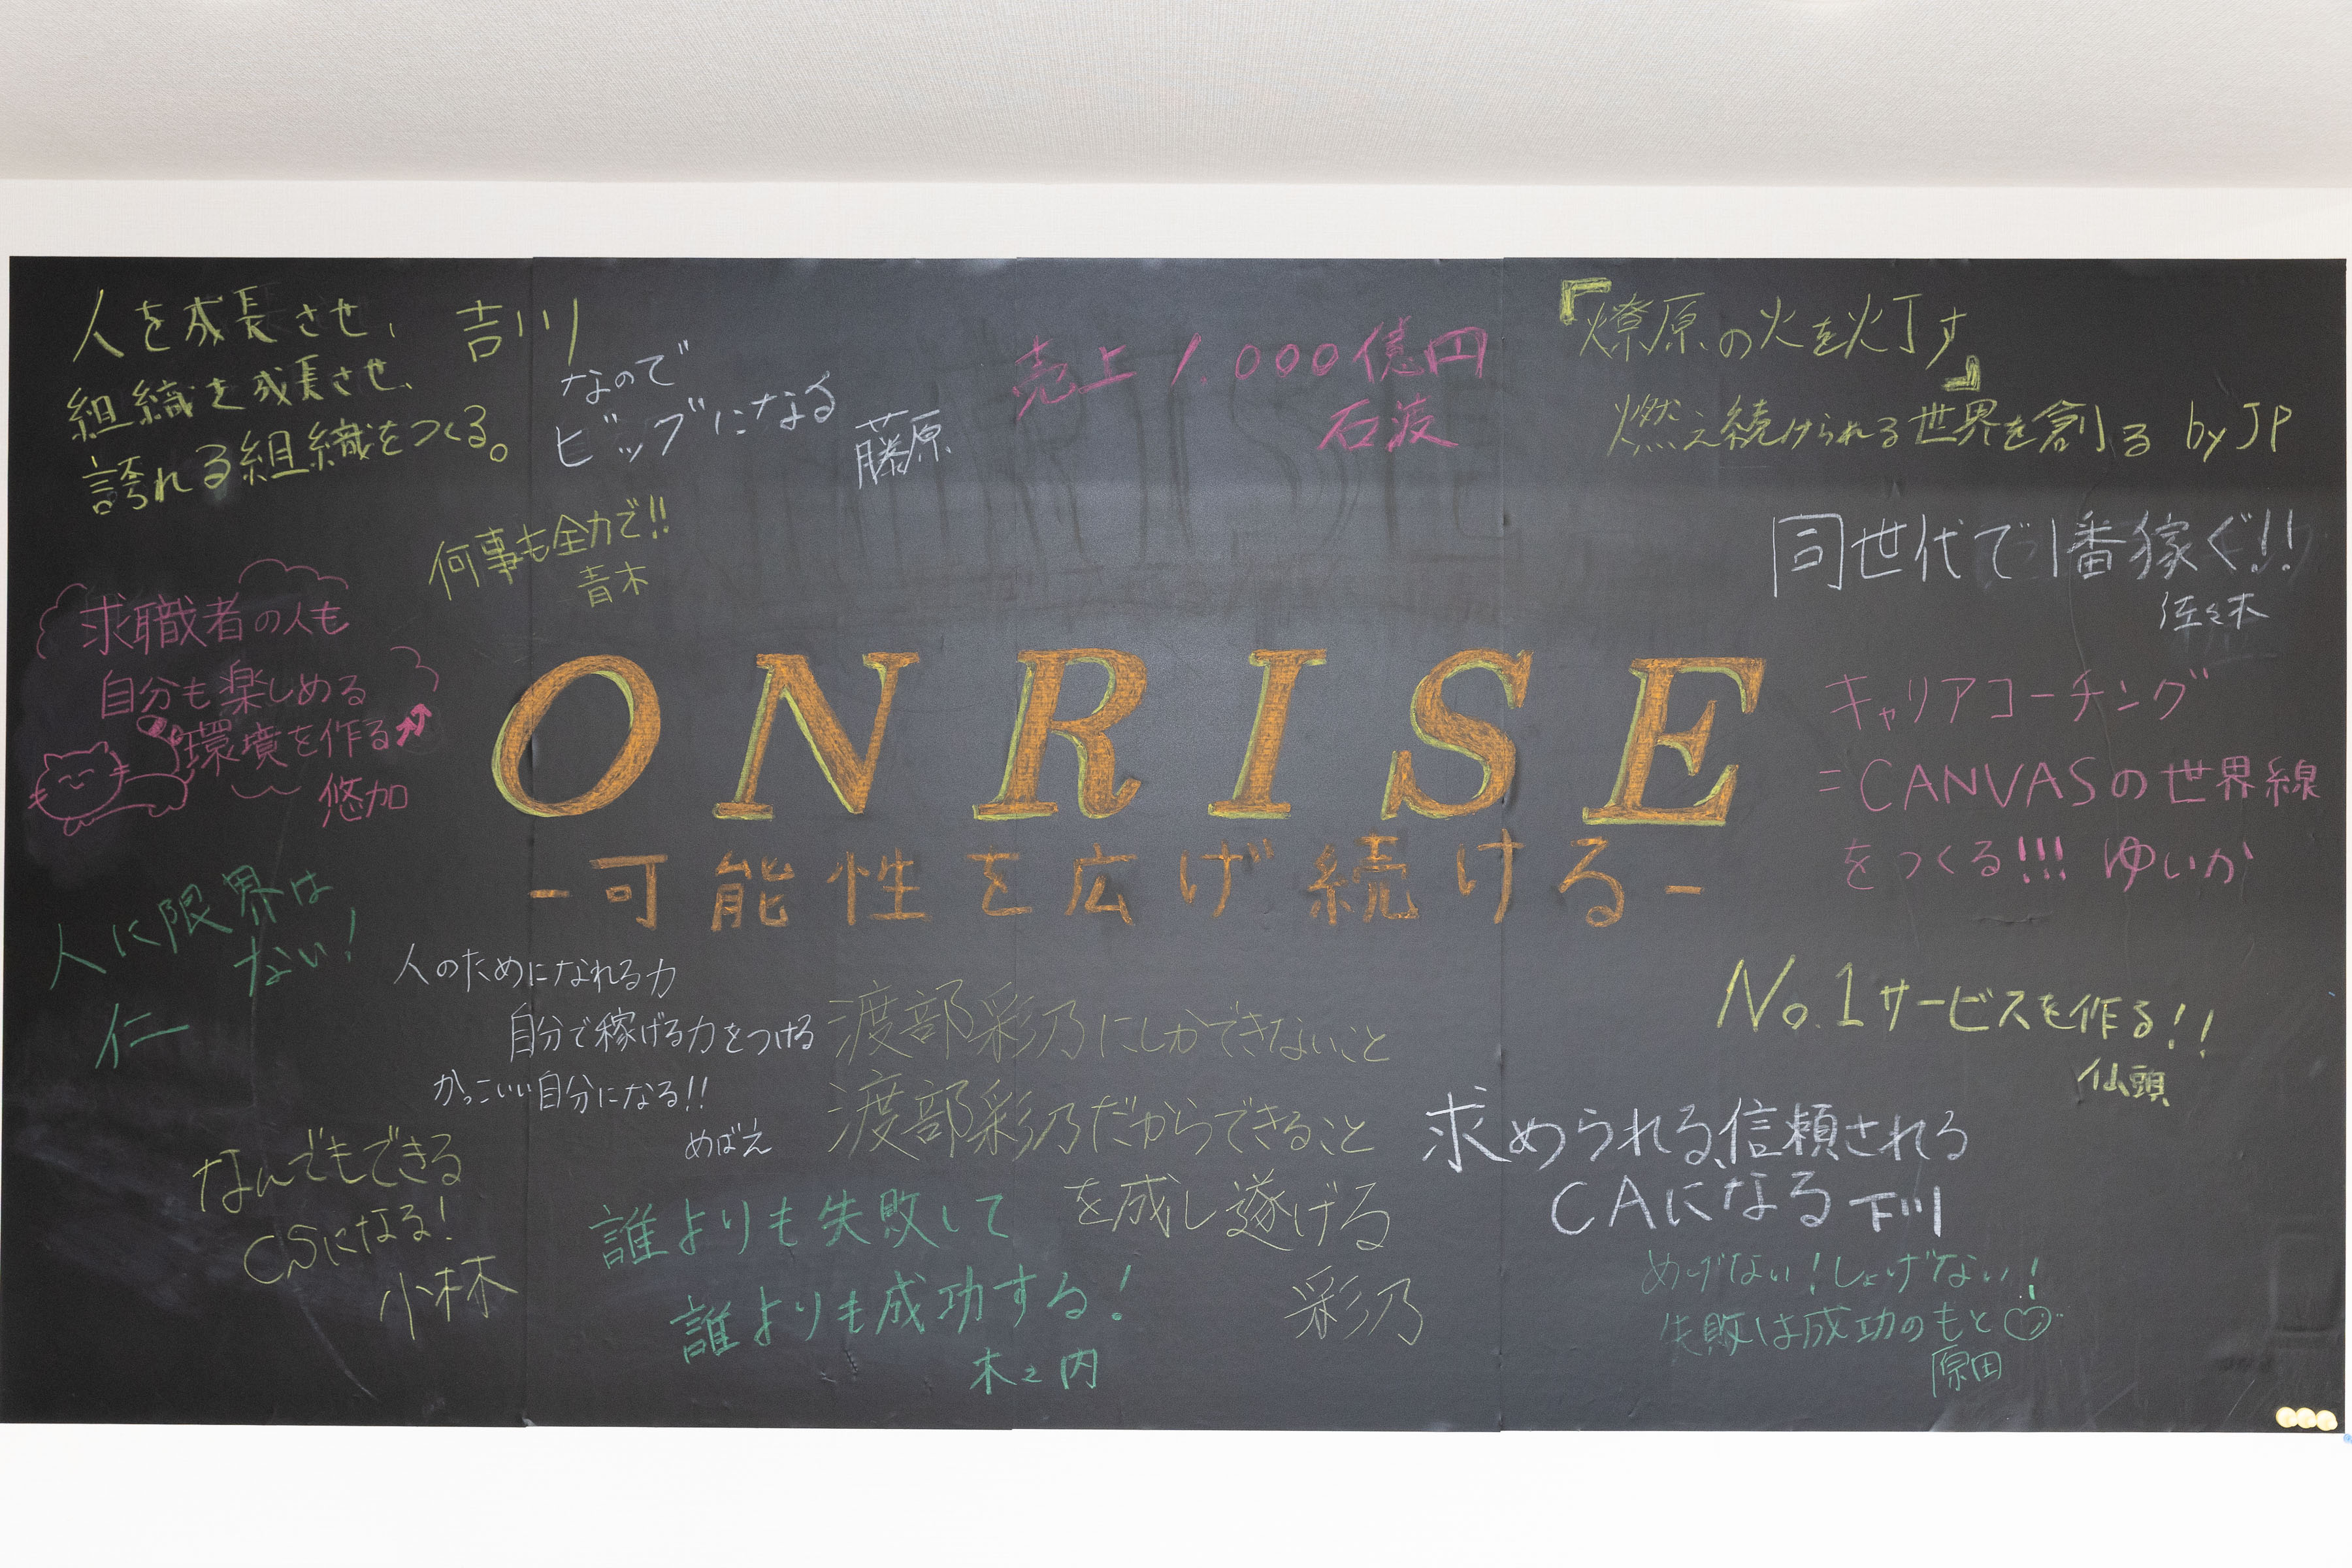 人を成長させ、
組織を成長させ、
誇れる組織をつくる。
吉川
なので
ビッグになる
藤原
売上1,000億円
石波
『燎原の火を灯す』
燃え続けられる世界を創る by JP
何事も全力で!!
青木
同世代で1番稼ぐ!!
佐々木
求職者の人も
自分も楽しめる
環境を作る
悠加
ONRISE
-可能性を広げ続ける-
キャリアコーチング
=CANVASの世界線
をつくる!!! ゆいか
人に限界は
ない!
仁
人のためになれる力
自分で稼げる力をつける
かっこいい自分になる!!
めばえ
渡部彩乃にしかできないこと
渡部彩乃だからできること
を成し遂げる
彩乃
No.1サービスを作る!!
仙頭
求められる、信頼される
CAになる 下川
なんでもできる
CSになる!
小林
誰よりも失敗して
誰よりも成功する!
木之内
めげない!しょげない!
失敗は成功のもと♡
原田